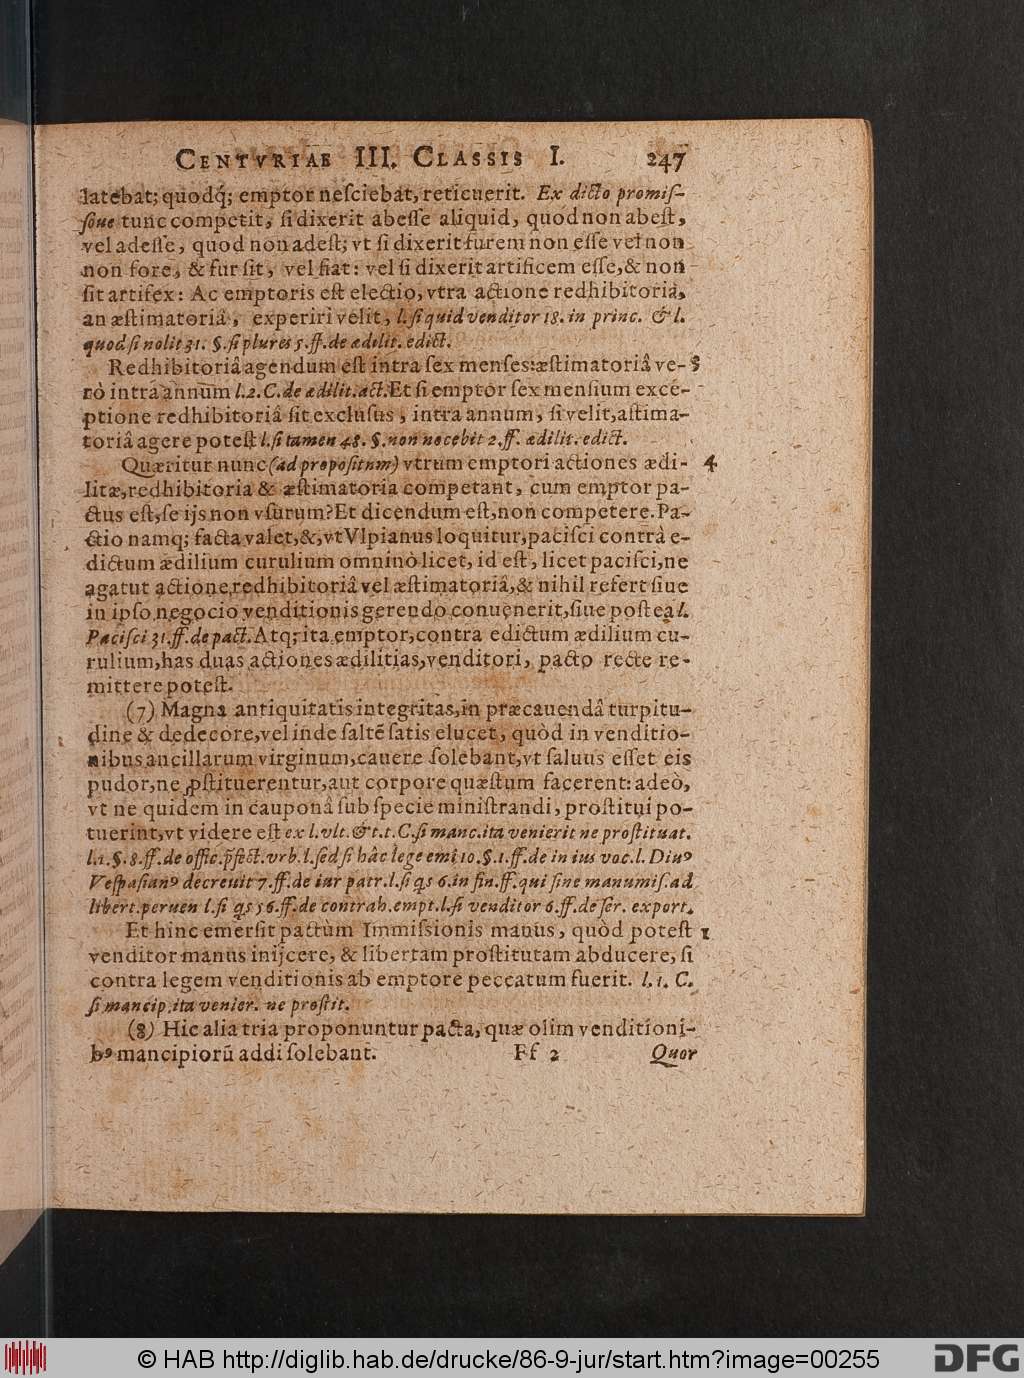 CENTVRIAE III. CLASSIS I. 247
latebat; quodq́; emptor neſciebat, reticuerit. Ex dicto promiſ-
ſoue tunc competit, ſi dixerit abeſſe aliquid, quod non abeſt,
vel adeſſe, quod non adeſt; vt ſi dixerit furem non eſſe vel non
non fore, & fur ſit, vel fiat: vel ſi dixerit artificem eſſe, & non
ſit artifex: Ac emptoris eſt electio, vtra actione redhibitoriâ,
an æſtimatoriâ, experiri velit, l. ſi quid venditor 18. in princ. & l.
quod ſi nolit 31. §. ſi plures 5. ff. de ædilit. edict.
Redhibitoriâ agendum eſt intra ſex menſes: æſtimatoriâ ve- 3
rò intrà annum l. 2. C. de ædilit. act. Et ſi emptor ſex menſium exce-
ptione redhibitoriâ ſit excluſus, intra annum, ſi velit, æſtima-
toriâ agere poteſt l. ſi tamen 48. §. non nocebit 2. ff. ædilit. edict.
Quæritur nunc (ad propoſitum) vtrum emptori actiones ædi- 4
litæ, redhibitoria & æſtimatoria competant, cum emptor pa-
ctus eſt, ſe ijs non vſurum? Et dicendum eſt, non competere. Pa-
ctio namq; facta valet, &, vt Vlpianus loquitur, paciſci contrà e-
dictum ædilium curulium omninò licet, id eſt, licet paciſci, ne
agatur actione redhibitoriâ vel æſtimatoriâ, & nihil refert ſiue
in ipſo negocio venditionis gerendo conuenerit, ſiue poſtea l.
Paciſci 31. ff. de pact. Atq; ita emptor, contra edictum ædilium cu-
rulium, has duas actiones ædilitias, venditori, pacto recte re-
mittere poteſt.
(7) Magna antiquitatis integritas, in præcauendâ turpitu-
dine & dedecore, vel inde ſaltẽ ſatis elucet, quòd in venditio-
nibus ancillarum virginum, cauere ſolebant, vt ſaluus eſſet eis
pudor, ne ꝓſtituerentur, aut corpore quæſtum facerent: adeò,
vt ne quidem in cauponâ ſub ſpecie miniſtrandi, proſtitui po-
tuerint, vt videre eſt ex l. vlt. & t. t. C. ſi manc. ita venierit ne proſtituat.
l. 1. §. 8. ff. de offic. p̃fect. vrb. l. ſed ſi hâc lege emi 10. §. 1. ff. de in ius voc. l. Diuꝰ
Veſpaſianꝰ decreuit 7. ff. de iur patr. l. ſi qs 6. in fin. ff. qui ſine manumiſ. ad
libert. peruen l. ſi qs 56. ff. de contrah. empt. l. ſi venditor 6. ff. de ſer. export.
Et hinc emerſit pactum Immiſsionis manus, quòd poteſt 1
venditor manus inijcere, & libertam proſtitutam abducere, ſi
contra legem venditionis ab emptore peccatum fuerit. l. 1. C.
ſi mancip. ita venier. ne proſtit.
(8) Hic alia tria proponuntur pacta, quæ olim venditioni-
bꝰ mancipiorũ addi ſolebant. Ff 2 Quor
© HAB http://diglib.hab.de/drucke/86-9-jur/start.htm?image=00255 DFG